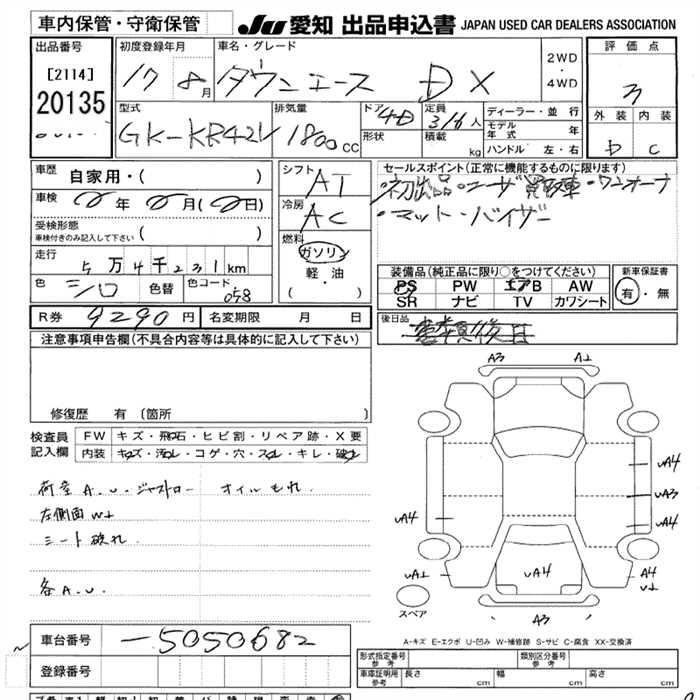 車内保管・守衛保管
JU 愛知 出品申込書 JAPAN USED CAR DEALERS ASSOCIATION
出品番号
[2114]
20135
初度登録年月
17 8月
車名・グレード
タウンエース DX
2WD
・
4WD
評価点
3
外装 内装
D C
型式
GK-KR42V
排気量
1800cc
ドア 4D
形状
定員 3/6人
積載 kg
ディーラー・並行
モデル年式 年
ハンドル 左・右
車歴 自家用・( )
車検 年 月( 日)
受検形態
車検付きのみ記入して下さい ( )
走行
5万4千231km
色 シロ 色替 色コード 058
シフト AT
冷房 AC
燃料
ガソリン
軽・油
( ・ )
セールスポイント(正常に機能するものに限ります)
・初出品・ユーザー買取車・ワンオーナ
・マット・バイザー
装備品(純正品に限り○をつけてください)
PS PW エアB AW
SR ナビ TV カワシート
新車保証書
有・無
R券 9290円 名変期限 月 日
後日品
注意事項申告欄(不具合内容等は具体的に記入して下さい)
修復歴 有(箇所 )
検査員記入欄
FW キズ・飛石・ヒビ割・リペア跡・X要
内装 キズ・汚れ・コゲ・穴・スレ・キレ・破れ
荷室 A.U.ジャストロー オイルもれ.
左側面 W1
シート破れ
各A.U.
A3 A1
UA4
UA3
UA4
UA4
UA1
UA4
A4
U1
A3
スペア
A-キズ E-エクボ U-凹み W-補修跡 S-サビ C-腐食 XX-交換済
車台番号 -5050682
登録番号
形式指定番号 参考
類別区分番号 参考
車庫証明用 参考 長さ cm 幅 cm 高さ cm